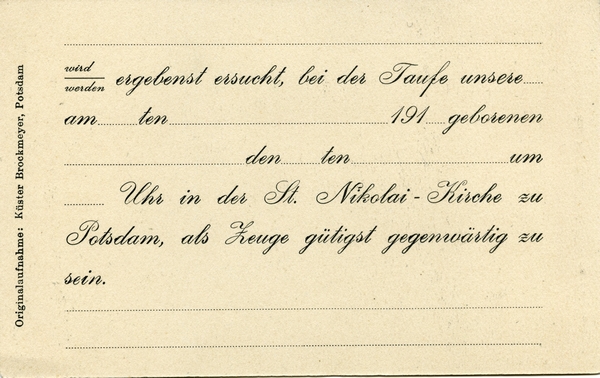 wird
werden ergebenst ersucht, bei der Taufe unsere
am ten 191 geborenen
den ten um
Uhr in der St. Nikolai - Kirche zu
Potsdam, als Zeuge gütigst gegenwärtig zu
sein.
Originalaufnahme: Küster Brockmeyer, Potsdam